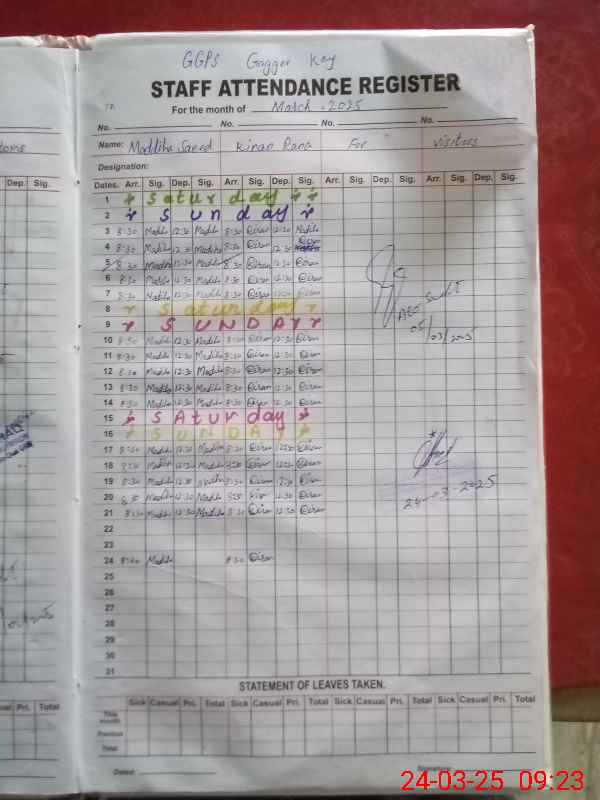 GGPS Gagger Key
STAFF ATTENDANCE REGISTER
For the month of March . 2025
No. No. No. No.
Name: Maddiha Saeed Kiran Rana For visitors
Designation:
Dates. Arr. Sig. Dep. Sig. Arr. Sig. Dep. Sig. Arr. Sig. Dep. Sig. Arr. Sig. Dep. Sig.
1 Saturday
2 Sunday
3 8:30 Madiha 12:30 Madiha 8:30 Qiran 12:30
4 8:30 Madiha 12:30 Madiha 8:30 Qiran 12:30 Qiran
5 8:30 Madiha 12:30 Madiha 8:30 Qiran 12:30 Qiran
6 8:30 Madiha 12:30 Madiha 8:30 Qiran 12:30 Qiran
7 8:30 Madiha 12:30 Madiha 8:30 Qiran 12:30 Qiran
8 Saturday
9 SUNDAY
10 8:30 Madiha 12:30 Madiha 8:30 Qiran 12:30 Qiran
11 8:30 Madiha 12:30 Madiha 8:30 Qiran 12:30 Qiran
12 8:30 Madiha 12:30 Madiha 8:30 Qiran 12:30 Qiran
13 8:30 Madiha 12:30 Madiha 8:30 Qiran 12:30 Qiran
14 8:30 Madiha 12:30 Madiha 8:30 Qiran 12:30 Qiran
15 SAturday
16 SUNDAY
17 8:30 Madiha 12:30 Madiha 8:30 Qiran 12:30 Qiran
18 8:30 Madiha 12:30 Madiha 8:30 Qiran 12:30 Qiran
19 8:30 Madiha 12:30 Madiha 8:30 Qiran 12:30 Qiran
20 8:30 Madiha 12:30 Madiha 8:30 Qiran 12:30 Qiran
21 8:30 Madiha 12:30 Madiha 8:30 Qiran 12:30 Qiran
22
23
24 8:30 Madiha 8:30 Qiran
25
26
27
28
29
30
31
AEO
05/03/2025
24-03-2025
STATEMENT OF LEAVES TAKEN.
Sick Casual Pri. Total Sick Casual Pri. Total Sick Casual Pri. Total Sick Casual Pri. Total
This month
Previous
Total
Dated: Signature:
Dep. Sig.
Pri. Total
24-03-25 09:23